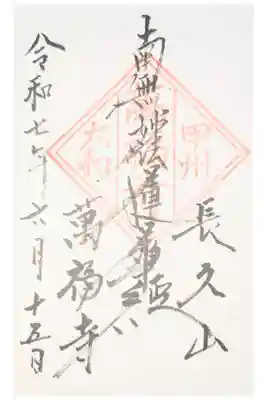 甲州
大和
長久山
南無妙法蓮華経
萬福寺
令和七年六月十五日